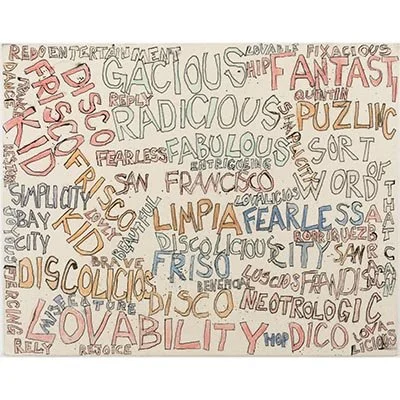 REDO ENTERTAINMENT
LOVABLE FIXACIOUS
DANCE
FRISCO
KID
DISCO
GACIOUS
HIP
FANTAST
REPLY
RADICIOUS
QUINTIN
PUZLINC
SIMPLICITY
FEARLESS
FABULOUS
ENTRIGUEING
SORT
WORD
OF
THAT
SAN FRANCISCO
SIMPLICITY
BAY
CITY
FRISCO
KID
LOVELY
BEAUTIFUL
LOVALICIOUS
LIMPIA
FEARLESS
RODRIGUEZ
JOYOUS
PIERCING
BRAVE
DISCOLICIOUS
CITY
SAN
DISCOLICIOS
FRISO
LUSCIOS
FRANDISCO
BENEFICIAL
MISFEATURE
DISCO
NEOTROLOGIC
LOVABILITY
HOP
DICO
LOVA-
LICIOUS
RELY
REJOICE